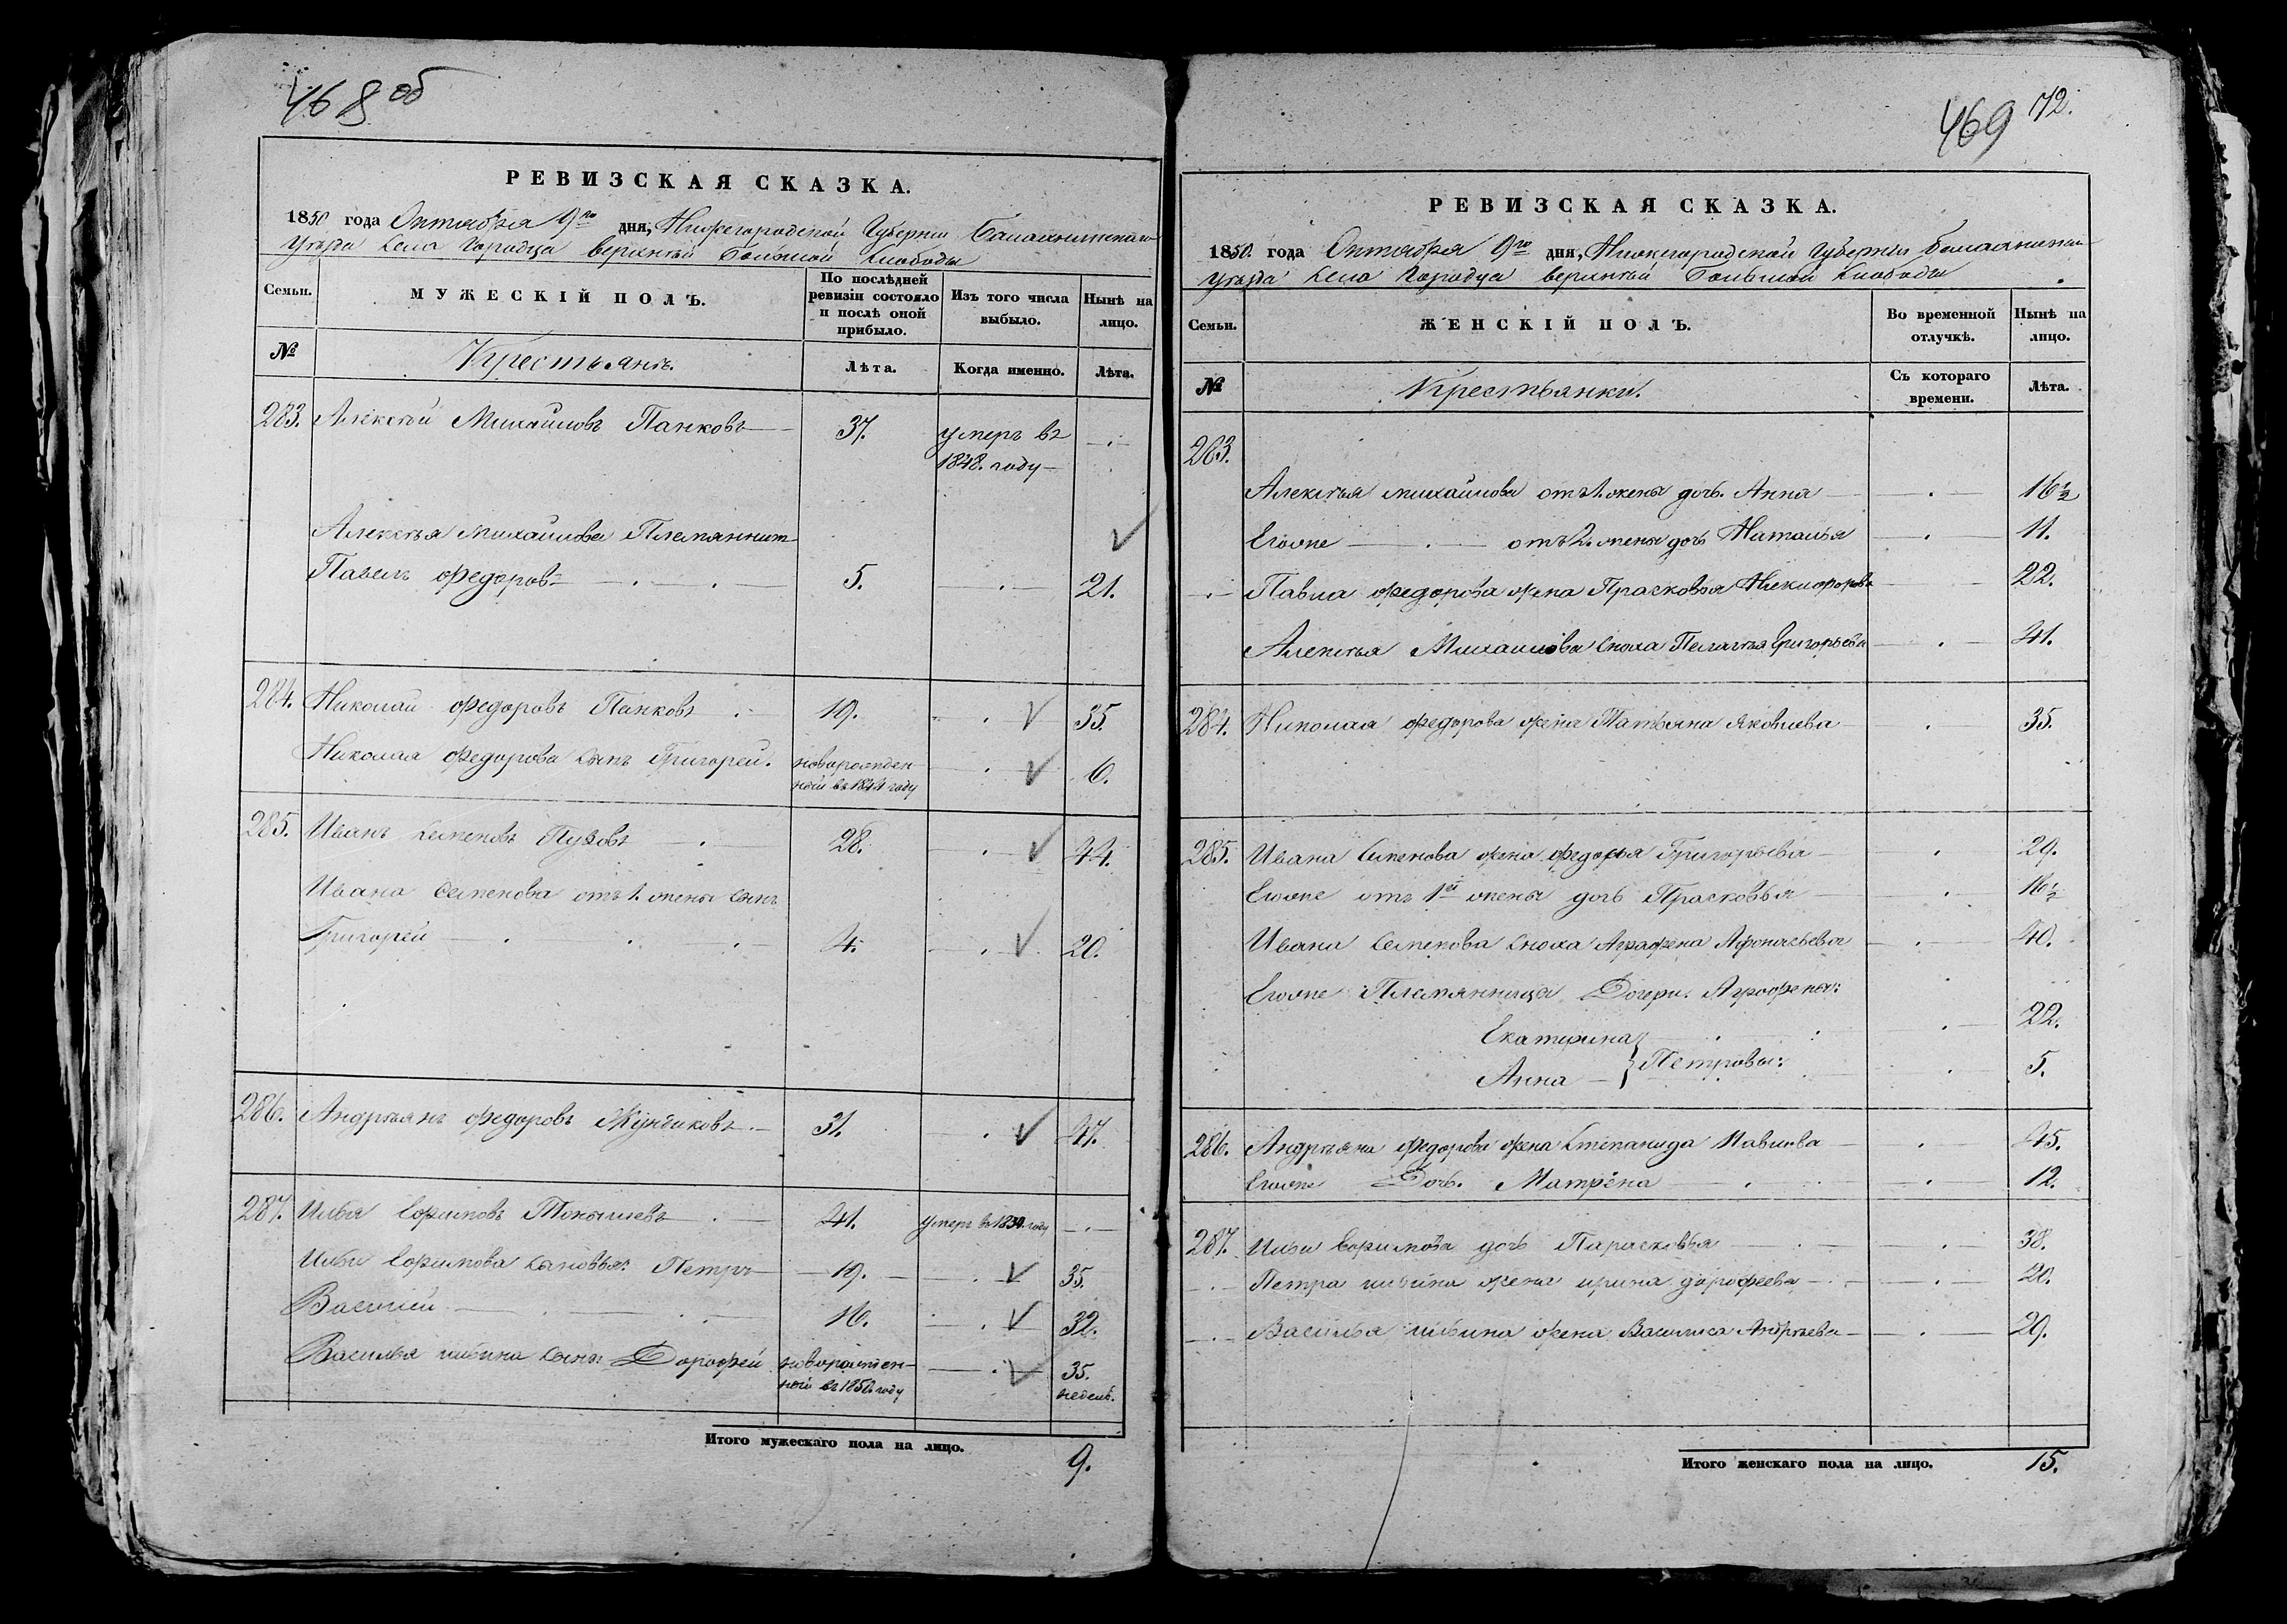 468 об
РЕВИЗСКАЯ СКАЗКА.
1850 года Октября 9го дня, Нижегородской Губернии Балахнинскаго
Уезда Села Городца верхней Большой Слободы
Семьи.
МУЖЕСКІЙ ПОЛЪ.
По послѣдней ревизіи состояло и послѣ оной прибыло.
Изъ того числа выбыло.
Нынѣ на лицо.
№
Крестьянъ.
Лѣта.
Когда именно.
Лѣта.
283. Алексѣй Михайловъ Панковъ 37. умеръ въ
1848. году
Алексѣя Михайлова Племянник
Павелъ Федоровъ 5. 21.
284. Николай Федоровъ Панковъ 19. 35.
Николая Федорова сынъ Григорей. новорожден- 6.
ной въ 1844 году
285. Иванъ Семеновъ Пузовъ 28. 44.
Ивана Семенова отъ 1. жены сынъ
Григорей 4. 20.
286. Андреянъ Федоровъ 31. 47.
287. Илья Ефимовъ 41. умеръ въ 1839. году
Ильи Ефимова сыновья: Петръ 19. 35.
Василий 16. 32.
Василья Ильина сынъ Дорофей новорожден- 35.
ной въ 1850 году недель.
Итого мужескаго пола на лицо. 9.
469 72.
РЕВИЗСКАЯ СКАЗКА.
1850. года Октября 9го дня, Нижегородской Губернии Балахнинска
Уезда Села Городца верхней Большой Слободы
Семьи.
ЖЕНСКІЙ ПОЛЪ.
Во временной отлучкѣ.
Нынѣ на лицо.
№
Крестьянки.
Съ котораго времени.
Лѣта.
283.
Алексѣя Михайлова отъ 1. жены дочь. Анна 16½
Егоже отъ 2. жены дочь Наталья 11.
Павла Федорова жена Прасковья Никифорова 22.
Алексѣя Михайлова сноха Пелагѣя Григорьева 41.
284. Николая Федорова жена Татьяна Яковлева 35.
285. Ивана Семенова жена Федосья Григорьева 29.
Егоже отъ 1ой жены дочь Прасковья 16½
Ивана Семенова сноха Аграфена Афонасьева 40.
Егоже Племянницы Дочери. Аграфены:
Екатерина 22.
Анна } Петровы: 5.
286. Андреяна Федорова жена Степанида Павлова 45.
Егоже Дочь. Матрёна 12.
287. Ильи Ефимова дочь Парасковья 38.
Петра Ильина жена Ирина Дорофеева 20.
Василья Ильина жена Василиса Андреева 29.
Итого женскаго пола на лицо. 15.